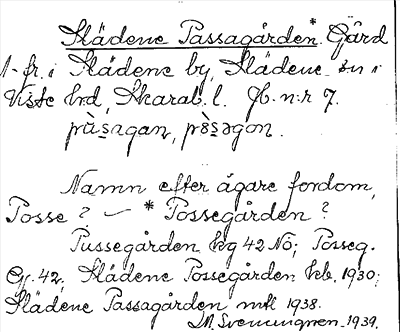 Slädene Passagården*. Gård
1. fr. i Slädene by, Slädene sn i
Viste hrd, Skarab. l. Jb. n:r 7.
pùs̱agan, pès̱əgon.
Namn efter ägare fordom,
Posse? — * Possegården?
Pussegården kg 42 NO; Posseg.
42, Slädene Possegården kb. 1930;
Slädene Passagården mtl 1938.
M. Svenungren. 1939.